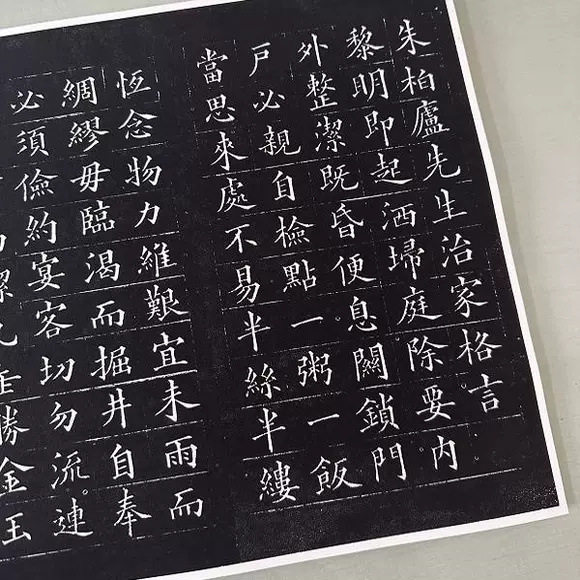 朱柏廬先生治家格言
黎明即起洒埽庭除要內
外整潔既昏便息關鎖門
戶必親自檢點一粥一飯
當思來處不易半絲半縷
恆念物力維艱宜未雨而
綢繆毋臨渴而掘井自奉
必須儉約宴客切勿流連
勝金玉